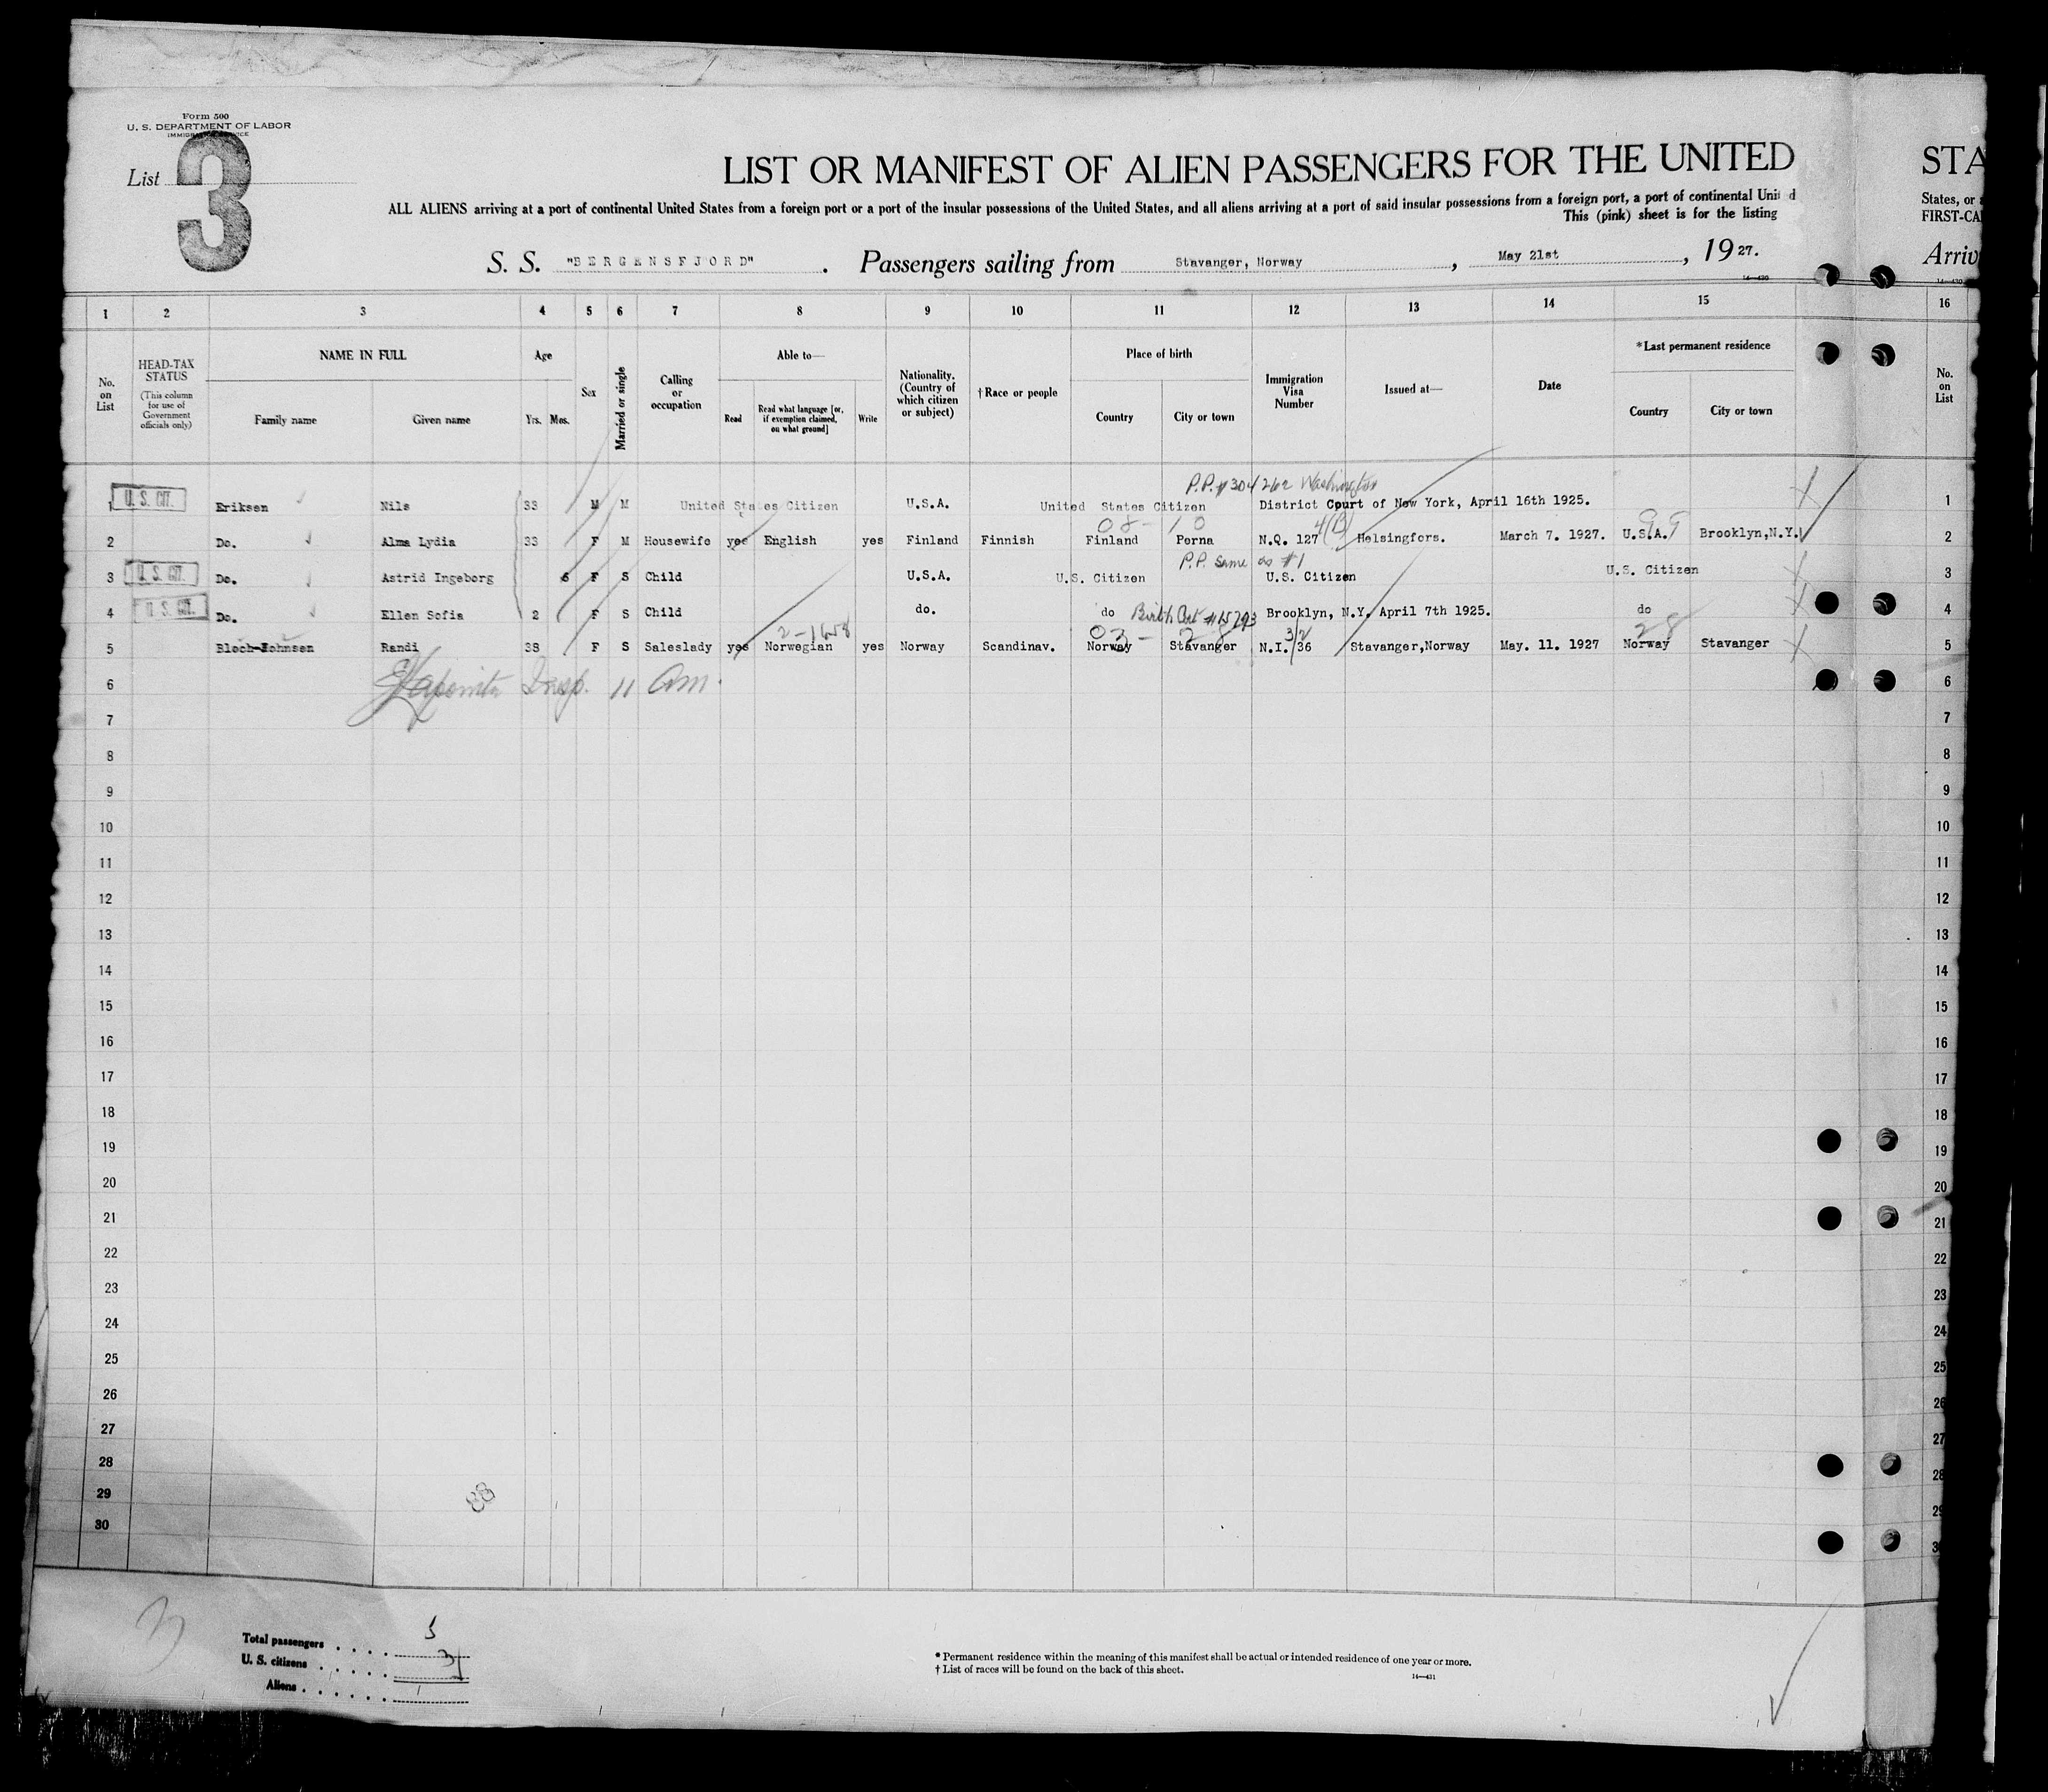 Form 500
U. S. DEPARTMENT OF LABOR
IMMIGRATION SERVICE
List 3
LIST OR MANIFEST OF ALIEN PASSENGERS FOR THE UNITED
STA
ALL ALIENS arriving at a port of continental United States from a foreign port or a port of the insular possessions of the United States, and all aliens arriving at a port of said insular possessions from a foreign port, a port of continental Unit d
States, or a
This (pink) sheet is for the listing
FIRST-CA
S. S. "BERGENSFJORD". Passengers sailing from Stavanger, Norway, May 21st, 1927.
Arriv
14—430
1 2 3 4 5 6 7 8 9 10 11 12 13 14 15 16
No. on List
HEAD-TAX STATUS (This column for use of Government officials only)
NAME IN FULL
Family name Given name
Age
Yrs. Mos.
Sex
Married or single
Calling or occupation
Able to—
Read
Read what language [or, if exemption claimed, on what ground]
Write
Nationality. (Country of which citizen or subject)
† Race or people
Place of birth
Country City or town
Immigration Visa Number
Issued at—
Date
*Last permanent residence
Country City or town
No. on List
P.P. # 304262 Washington
1 U. S. CIT. Eriksen Nils 33 M M United States Citizen U.S.A. United States Citizen District Court of New York, April 16th 1925. 1
08 - 10 4(B) 99
2 Do. Alma Lydia 33 F M Housewife yes English yes Finland Finnish Finland Perna N.Q. 127 Helsingfors. March 7. 1927. U.S.A. Brooklyn,N.Y. 2
P.P. same as #1
3 U. S. CIT. Do. Astrid Ingeborg 6 F S Child U.S.A. U.S. Citizen U.S. Citizen U.S. Citizen 3
4 U. S. CIT. Do. Ellen Sofia 2 F S Child do. do Birth Cert #15793 Brooklyn, N.Y. April 7th 1925. do 4
03 - 28 28
5 Bloch-Johnsen Randi 38 F S Saleslady yes Norwegian yes Norway Scandinav. Norway Stavanger N.I. 36 Stavanger,Norway May. 11. 1927 Norway Stavanger 5
6 Insp. 11 am. 6
7 7
8 8
9 9
10 10
11 11
12 12
13 13
14 14
15 15
16 16
17 17
18 18
19 19
20 20
21 21
22 22
23 23
24 24
25 25
26 26
27 27
28 28
29 29
30 3
88
Total passengers 5
U. S. citizens 3
Aliens
* Permanent residence within the meaning of this manifest shall be actual or intended residence of one year or more.
† List of races will be found on the back of this sheet.
14—431